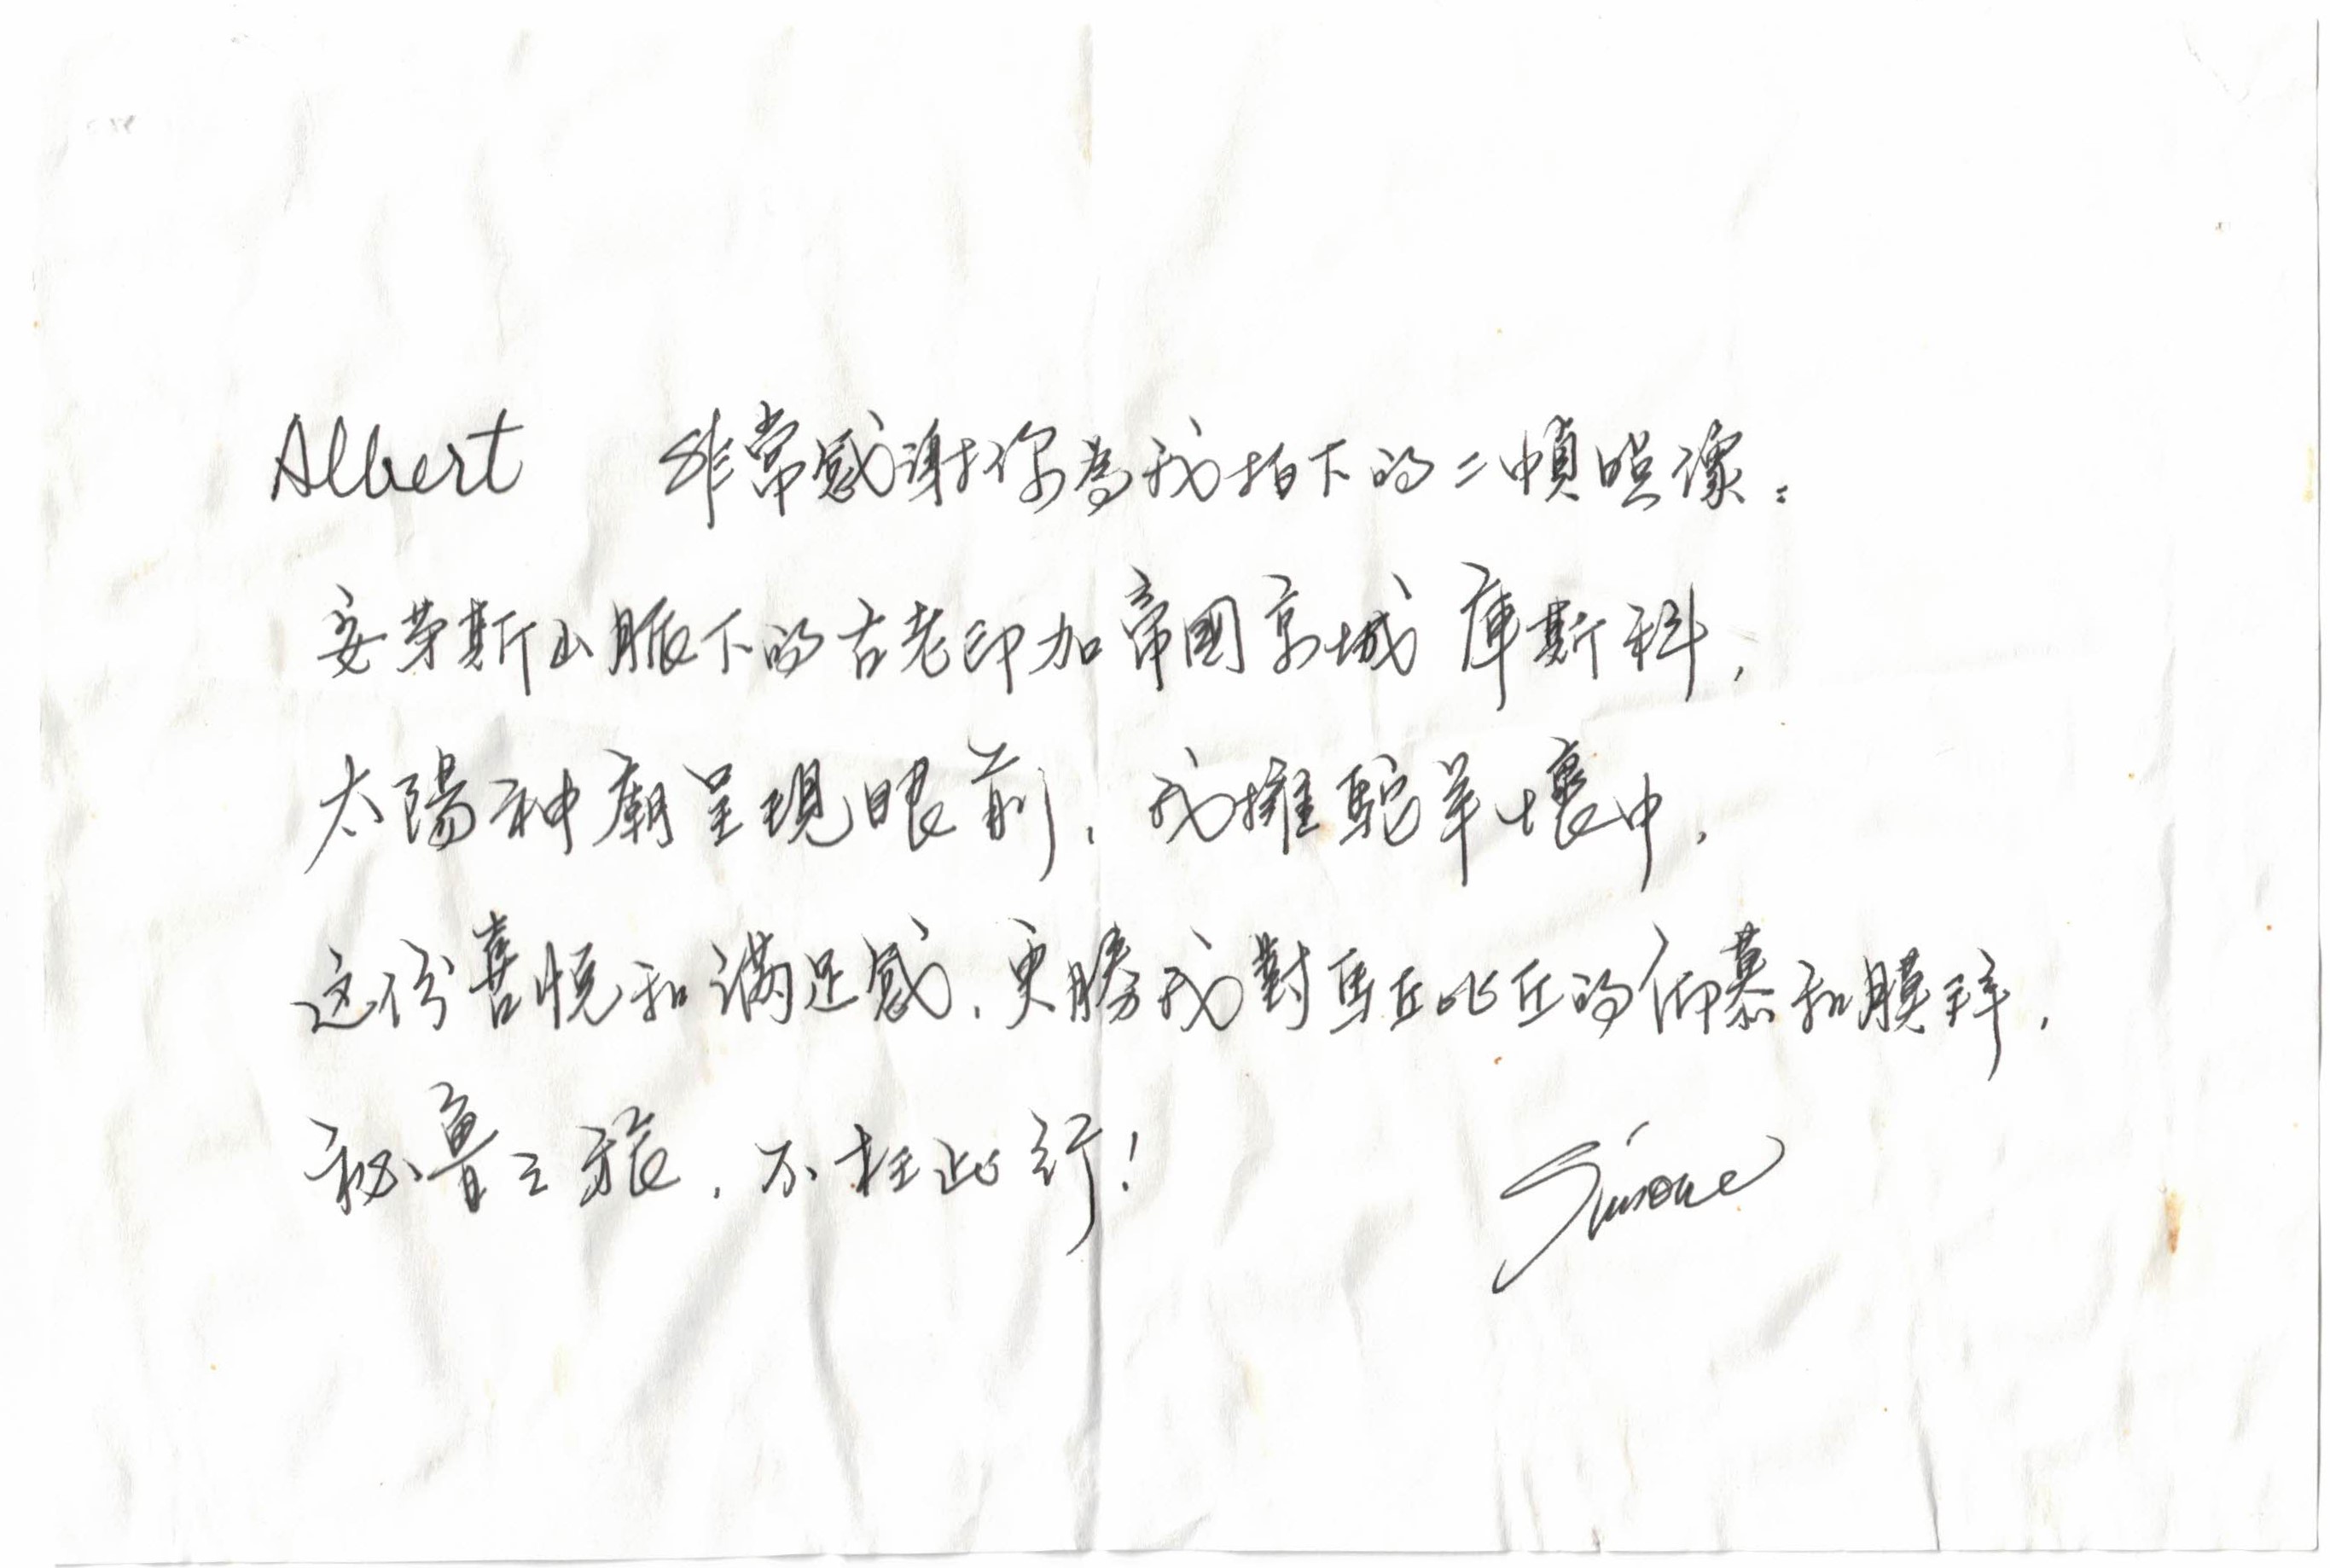 Albert 非常感謝你為我拍下的二幀照像：
安第斯山脈下的古老印加帝國京城 庫斯科，
太陽神廟呈現眼前，我擁駝羊懷中，
这份喜悅和滿足感，更勝我對馬丘比丘的仰慕和膜拜，
秘魯之旅，不枉此行！
Simone